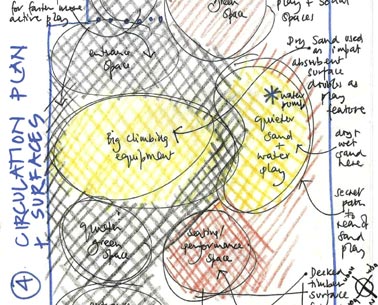 for faster more
active play
green
space
play + social
spaces
entrance
space
Dry Sand used
as an impact
absorbent
surface
doubles as
play
feature
water
pump
quieter
sand
+
water
play
Big climbing
equipment
dry +
wet
sand
here
secret
path
to rear of
sand
play
quieter
green
space
seating/
performance
space
Decked
timber
surface
4 CIRCULATION PLAN
+ SURFACES